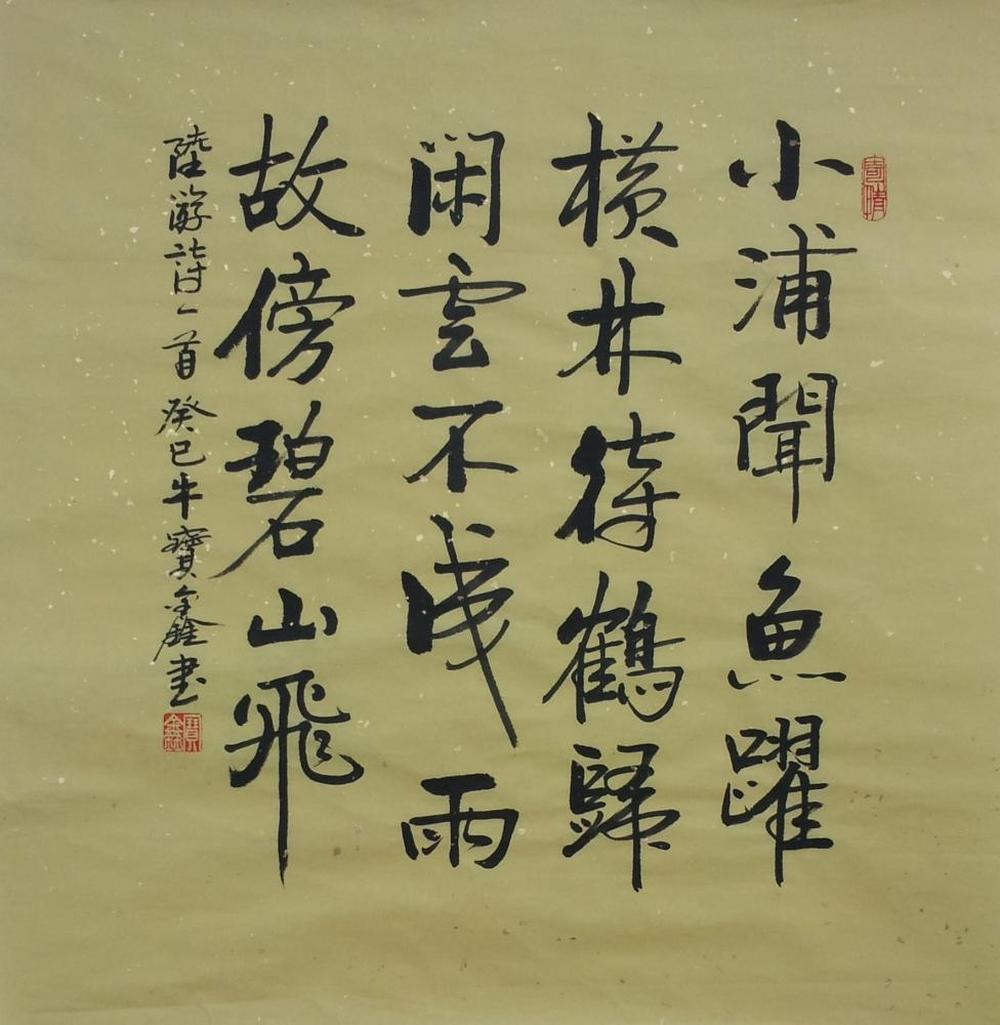 小浦聞魚躍
橫林待鶴歸
閑雲不成雨
故傍碧山飛
陸游詩一首 癸巳牛寶鑫書
寶鑫